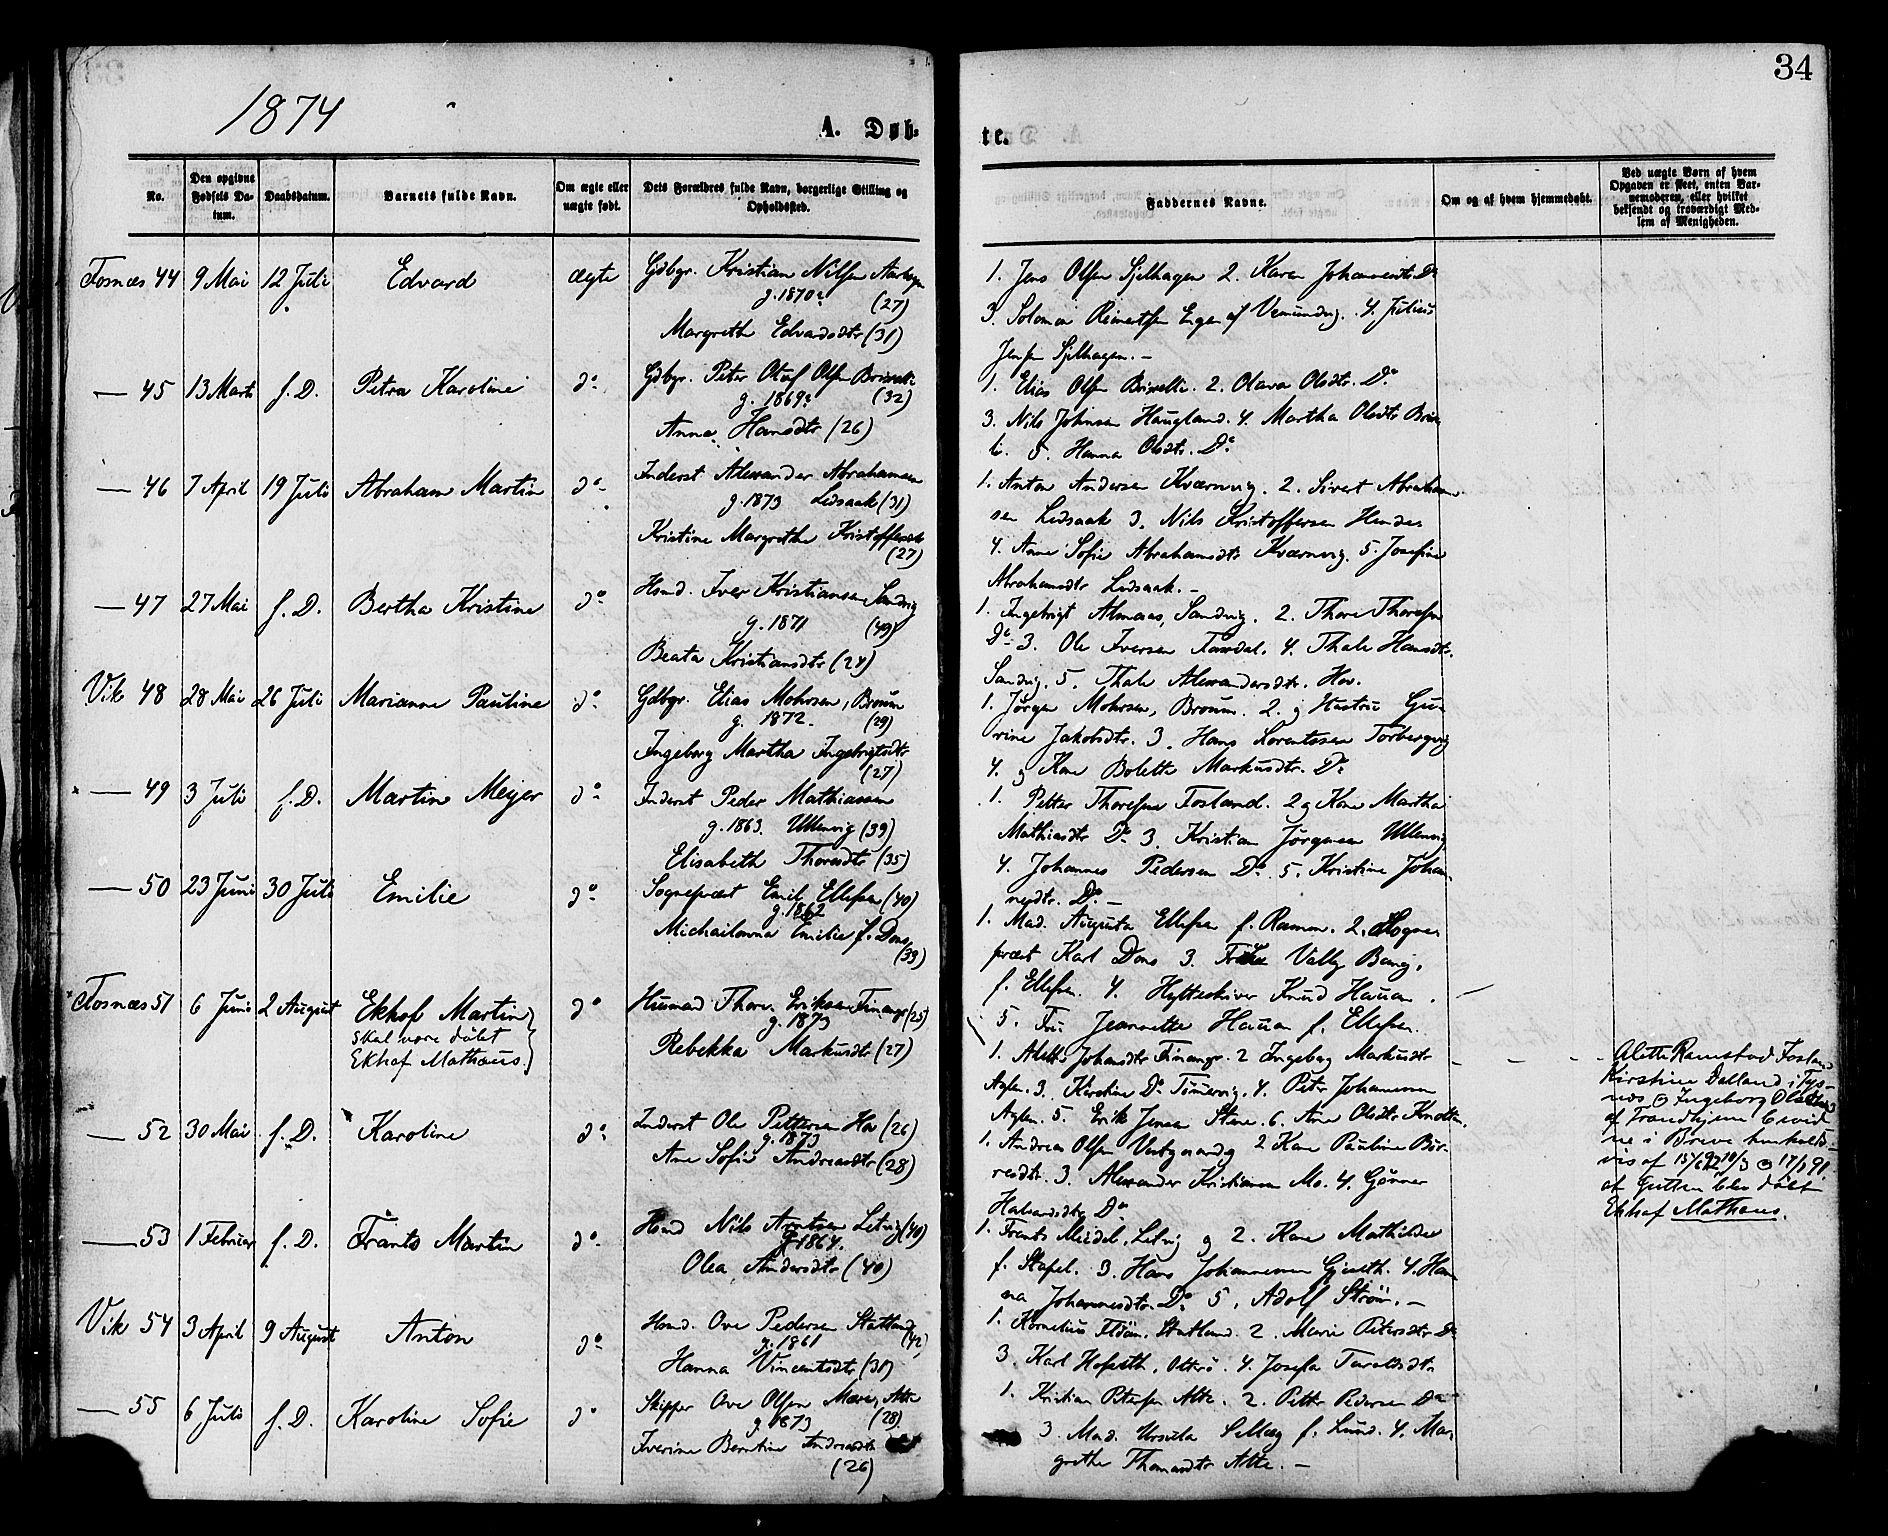 1874
A. Døb-
te.
34
No.
Den opgivne
Fødsels Da-
tum.
Daabsdatum.
Barnets fulde Navn.
Om ægte eller
uægte født.
Dets Forældres fulde Navn, borgerlige Stilling og
Opholdssted.
Faddernes Navne.
Om og af hvem hjemmedøbt.
Ved uægte Børn af hvem
Opgaven er skeet, enten Bar-
nemoderen, eller hvilket
bekjendt og troværdigt Med-
lem af Menigheden.
Fosnæs 44 9 Mai 12 Juli Edvard ægte Gdbgr. Kristian Nilsen
g. 1870 (27)
Margreth Edvardsdtr (31)
1. Jens Olsen Sjelhagen 2. Karen Johannesdtr Do
3. Solomon Reinertsen af Vemundvig. 4. Julius
Jensen Sjelhagen. —
— 45 13 Marts s. D. Petra Karoline do Gdbgr. Peter Olaf Olsen
g. 1869 (32)
Anna Hansdtr (26)
1. Elias Olsen 2. Olava Olsdtr. Do
3. Nils Johnsen Haugland. 4. Martha Olsdtr
5. Hanna Olsdtr. Do
— 46 7 April 19 Juli Abraham Martin do Inderst Alexander Abrahamsen
g. 1873 Ledsaak (31)
Kristine Margrethe Kristoffersdtr
(27)
1. Anton Andersen Kværnvig. 2. Sivert Abraham-
sen Ledsaak 3. Nils Kristoffersen
4. Anne Sofie Abrahamsdtr Kværnvig. 5. Josefine
Abrahamsdtr Ledsaak. —
— 47 27 Mai s. D. Bertha Kristine do Hsmd. Iver Kristiansen Sandvig
g. 1871 (49)
Beata Kristiansdtr (24)
1. Ingebrigt Almaas, Sandvig. 2. Thore Thoresen
Do 3. Ole Iversen 4. Thale Hansdtr.
Sandvig. 5. Thale Alexandersdtr. Hov.
Vik 48 28 Mai 26 Juli Marianne Pauline do Gdbgr. Elias Mohrsen, Broum
g. 1872. (29)
Ingeborg Martha Ingebrigtsdtr
(27)
1. Jørgen Mohrsen, Broum. 2. og Hustru Gu-
rine Jakobsdtr. 3. Hans Lorentssen Torbergvig
4. og Kone Bolette Markusdtr. Do
— 49 3 Juli s. D. Martin Meyer do Inderst Peder Mathiassen
g. 1863. Ullenvig (39)
Elisabeth Thoresdtr (35)
1. Petter Thoresen Fosland. 2 og Kone Martha
Mathiasdtr Do 3. Kristian Jørgensen Ullenvig
4. Johannes Pedersen Do. 5. Kristine Johan-
nesdtr. Do —
— 50 23 Juni 30 Juli Emilie do Sognepræst Emil Ellefsen (40)
g. 1862
Michailowna Emilie f. Dons
(39)
1. Mad. Augusta Ellefsen f. Ramm. 2. Sogne-
præst Karl Dons 3. Valby
f. Ellefsen. 4. Hytteskriver Knud Hauan.
5. Fru Jeannette Hauan f. Ellefsen.
Fosnæs 51 6 Juni 2 August Ekhof Martin do Husmand Thore Eriksen Finanger (25)
skal være døbt
Ekhof Mathæus.
g. 1873
Rebekka Markusdtr (27)
1. Aleth Johansdtr Finanger. 2 Ingeborg Markusdtr
Aglen. 3. Karoline Do 4. Peter Johannesen
Aglen. 5. Erik Jensen Stene. 6. Ane Olsdtr
Alette Ramstad Foslan
Kirstine Dalland i
og Ingeborg
af Trondhjem bevid-
ne i Breve henholds-
vis af
at Gutten blev døbt
Ekhof Mathæus.
— 52 30 Mai s. D. Karoline do Inderst Ole Pettersen Hov (26)
g. 1873
Ane Sofie Andreasdtr (28)
1. Andreas Olsen 2 Kone Pauline Bør-
resdtr. 3. Alexander Kristiansen Mo. 4. Gunner
Do
— 53 1 Februar s. D. Frants Martin do Hsmd Nils Arntsen Letvig (40)
g. 1864.
Olea Andersdtr (40)
1. Frants Meidel, Letvig og 2. Kone Mathilde
f. Stapel. 3. Hans Johannesen 4. Han-
na Johannesdtr. Do 5. Adolf Strøm. —
Vik 54 3 April 9 August Anton do Hsmd. Ove Pedersen Statland
g. 1861 (42)
Hanna Vincentsdtr (38)
1. Kornelius Statland. 2. Marie Petersdtr Do
3. Karl Otterø. 4. Josefa
— 55 6 Juli s. D. Karoline Sofie do Skipper Ove Olsen Alte
g. 1873 (28)
Iverine Berntine Andreasdtr
(26)
1. Kristian Petersen Alte. 2. Petter Pedersen Do
3. Mad. Ursula f. Lund. 4. Mar-
grethe Thomasdtr Alte. —